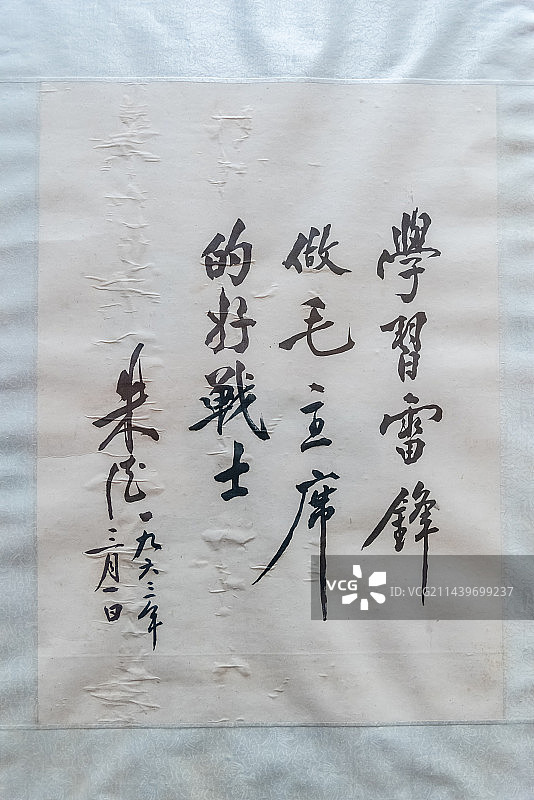 學習雷鋒
做毛主席
的好戰士
朱德
一九六三年
三月一日
VCG
VCG211439699237